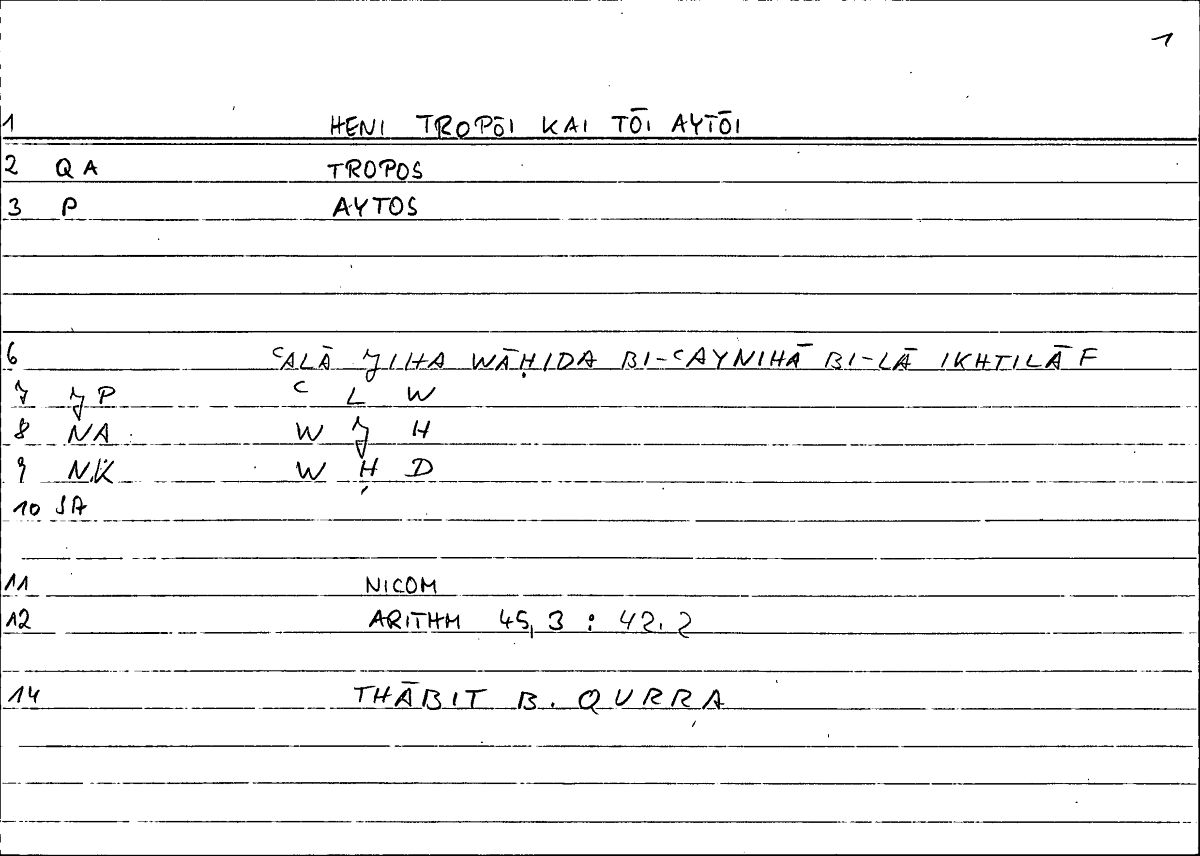 1
1 HENI TROPŌI KAI TŌI AYTŌI
2 QA TROPOS
3 P AYTOS
6 ʿALĀ JIHA WĀḤIDA BI-ʿAYNIHĀ BI-LĀ IKHTILĀF
7 JP ʿ L W
8 NA W J H
9 NK W Ḥ D
10 SA
11 NICOM
12 ARITHM 45,3 : 42.2
14 THĀBIT B. QURRA